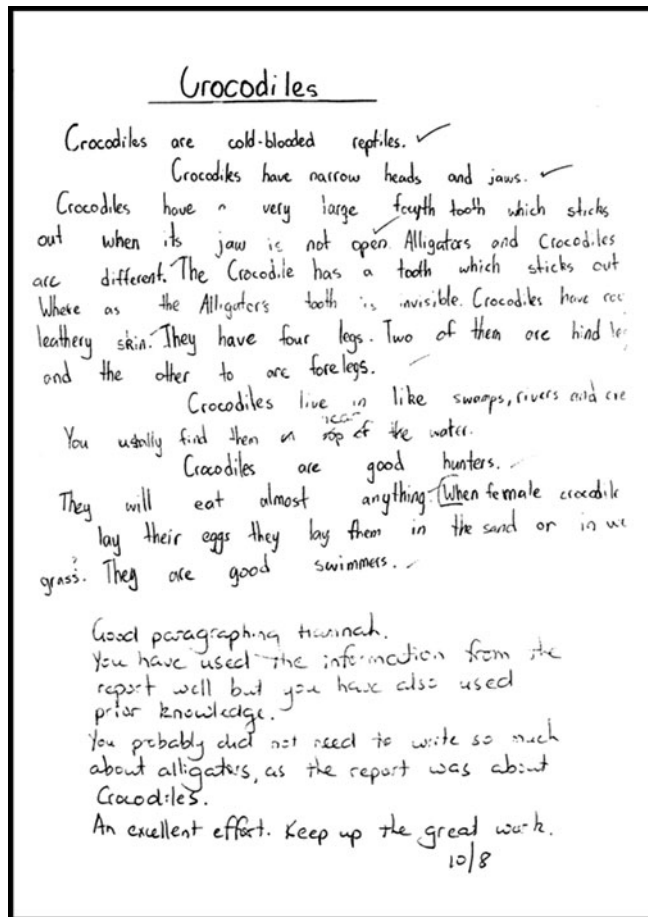 Crocodiles
Crocodiles are cold-blooded reptiles.
Crocodiles have narrow heads and jaws.
Crocodiles have a very large fourth tooth which sticks
out when its jaw is not open. Alligators and Crocodiles
are different. The Crocodile has a tooth which sticks out
Where as the Alligators tooth is invisible. Crocodiles have
leathery skin. They have four legs. Two of them are hind
and the other to are forelegs.
Crocodiles live in like swamps, rivers and
near
You usually find them on top of the water.
Crocodiles are good hunters.
They will eat almost anything. When female crocodile
lay their eggs they lay them in the sand or in
grass. They are good swimmers.
Good paragraphing Hannah.
You have used the information from the
report well but you have also used
prior knowledge.
You probably did not need to write so much
about alligators, as the report was about
Crocodiles.
An excellent effort. Keep up the great work.
10/8